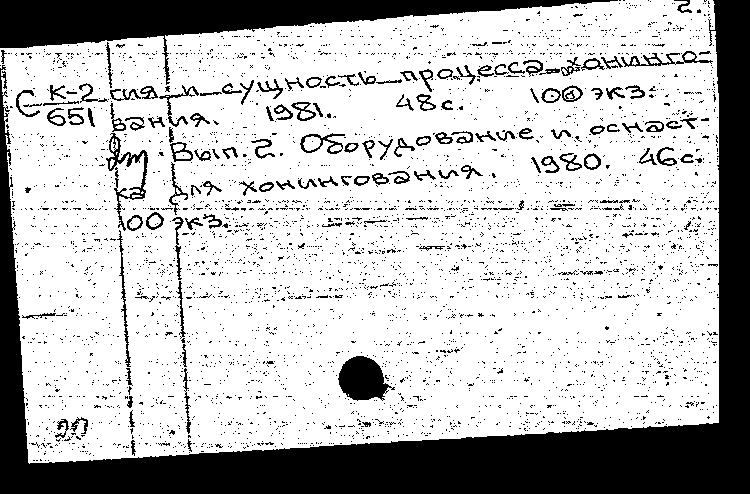 2.
С К-2 гия и сущность процесса хонинго-
651 вания. 1981. 48 с. 100 экз.
Вып. 2. Оборудование и оснаст-
ка для хонингования. 1980. 46 с.
100 экз.
20